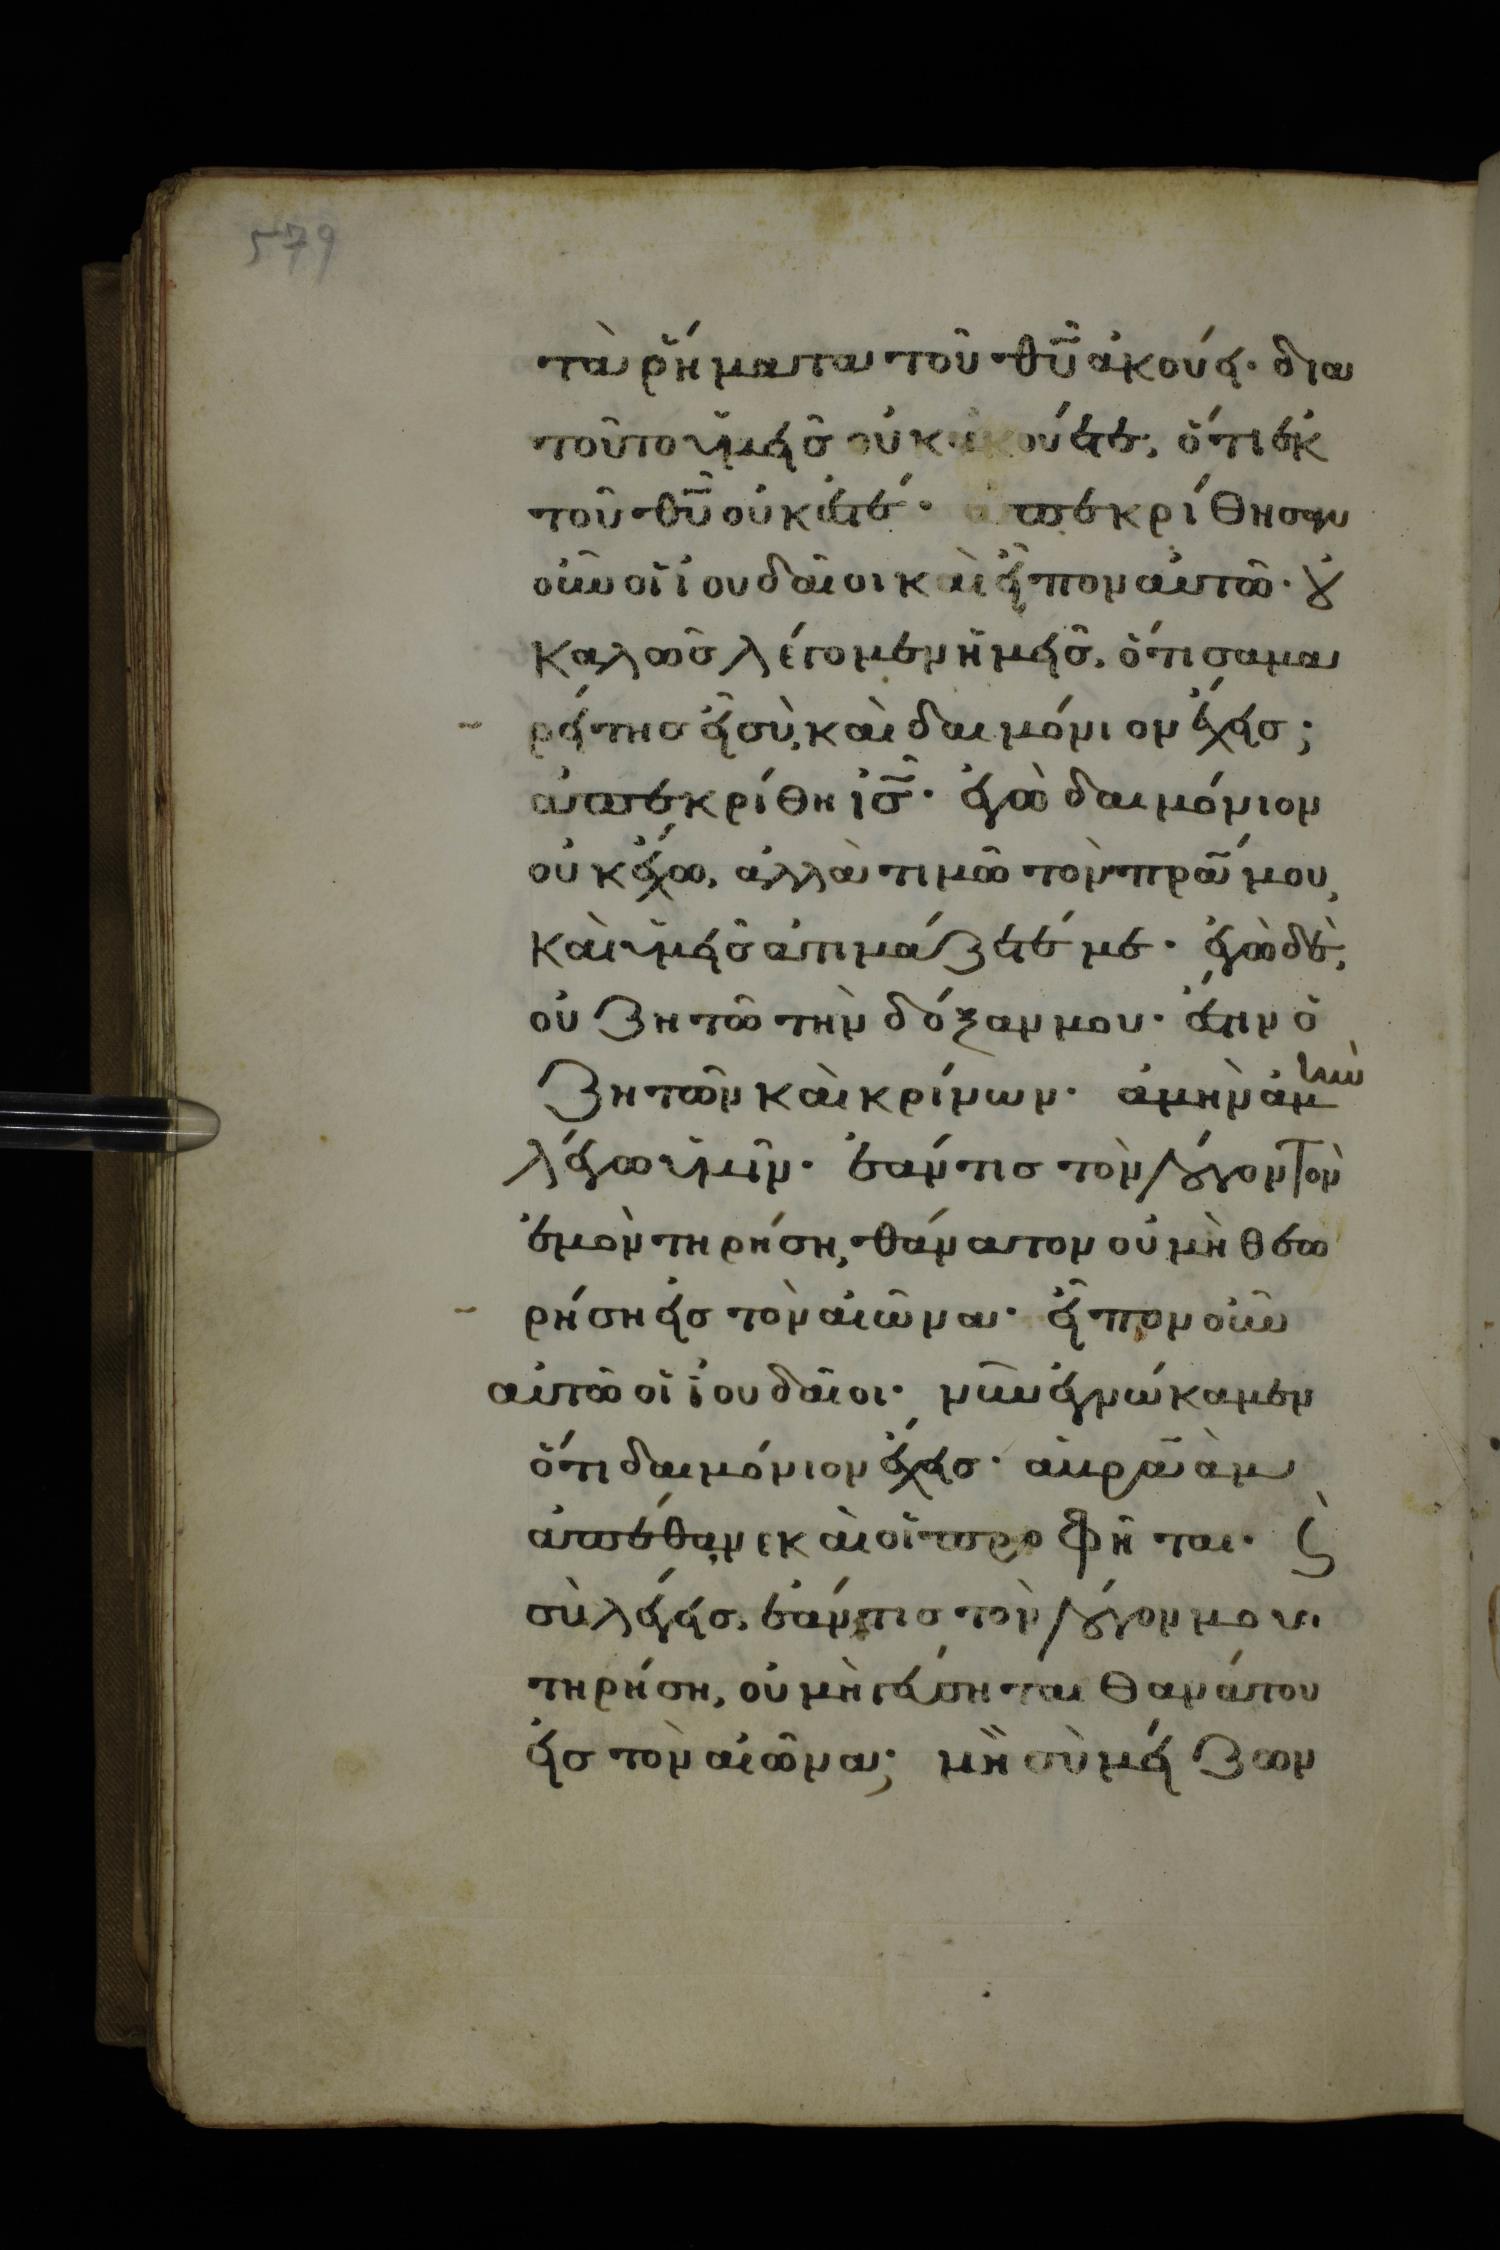 579
τὰ ῥήματα τοῦ θῦ ἀκούει· δια
τοῦτο ὑμεῖσ οὐκ ἀκούετε, ὅτι ἐκ
τοῦ θῦ οὐκ ἐστέ· ἀπεκρίθησαν
οὖν οἱ ἰουδαῖοι καὶ εἶπον αὐτῶ· οὐ
καλῶσ λέγομεν ἡμεῖσ, ὅτι σαμα
ρείτησ εἶ σὺ, καὶ δαιμόνιον ἔχεισ;
ἀπεκρίθη ἰσ̄· ἐγὼ δαιμόνιον
οὐκ ἔχω, ἀλλὰ τιμῶ τὸν πρ̄α μου,
καὶ ὑμεῖσ ἀτιμάζετέ με· ἐγὼ δὲ,
οὐ ζητῶ τὴν δόξαν μου· ἔστιν ὁ
ζητῶν καὶ κρίνων· ἀμὴν ἀμὴν
λέγω ὑμῖν· ἐάν τισ τὸν λόγον τὸν
ἐμὸν τηρήση, θάνατον οὐ μὴ θεω
ρήση εἰσ τὸν αἰῶνα· εἶπον οὖν
αὐτῶ οἱ ἰουδαῖοι· νῦν ἐγνώκαμεν
ὅτι δαιμόνιον ἔχεισ· ἀβραὰμ
ἀπέθανε καὶ οἱ προφῆται· ϛ
σὺ λέγεισ, ἐάν τισ τὸν λόγον μου
τηρήση, οὐ μὴ γεύσηται θανάτου
εἰσ τὸν αἰῶνα; μὴ σὺ μείζων